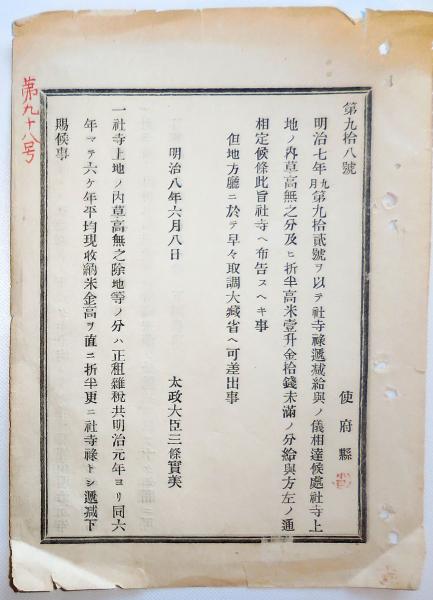 第九拾八號
使府縣
明治七年九月第九拾貳號ヲ以テ社寺祿遞減給與ノ儀相達候處社寺上
地ノ內草高無之分及ヒ折半高米壹升金拾錢未滿ノ分給與方左ノ通
相定候條此旨社寺ヘ布告スヘキ事
但地方廳ニ於テ早々取調大藏省ヘ可差出事
明治八年六月八日
太政大臣三條實美
一社寺上地ノ內草高無之除地等ノ分ハ正租雜稅共明治元年ヨリ同六
年マテ六ケ年平均現收納米金高ヲ直ニ折半更ニ社寺祿トシ遞減下
賜候事
第九十八号